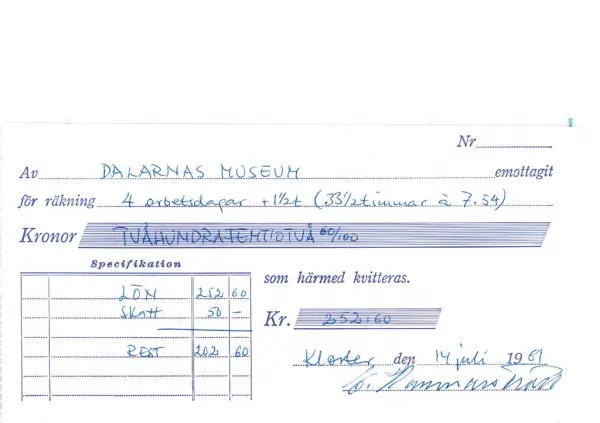 Nr
Av DALARNAS MUSEUM emottagit
för räkning 4 arbetsdagar + 1 1/2t (33 1/2 timmar à 7.54)
Kronor TVÅHUNDRAFEMTIOTVÅ 60/100
Specifikation
som härmed kvitteras.
LÖN 252 60
SKATT 50 –
Kr. 252:60
REST 202 60
Kloster den 14 juli 1961